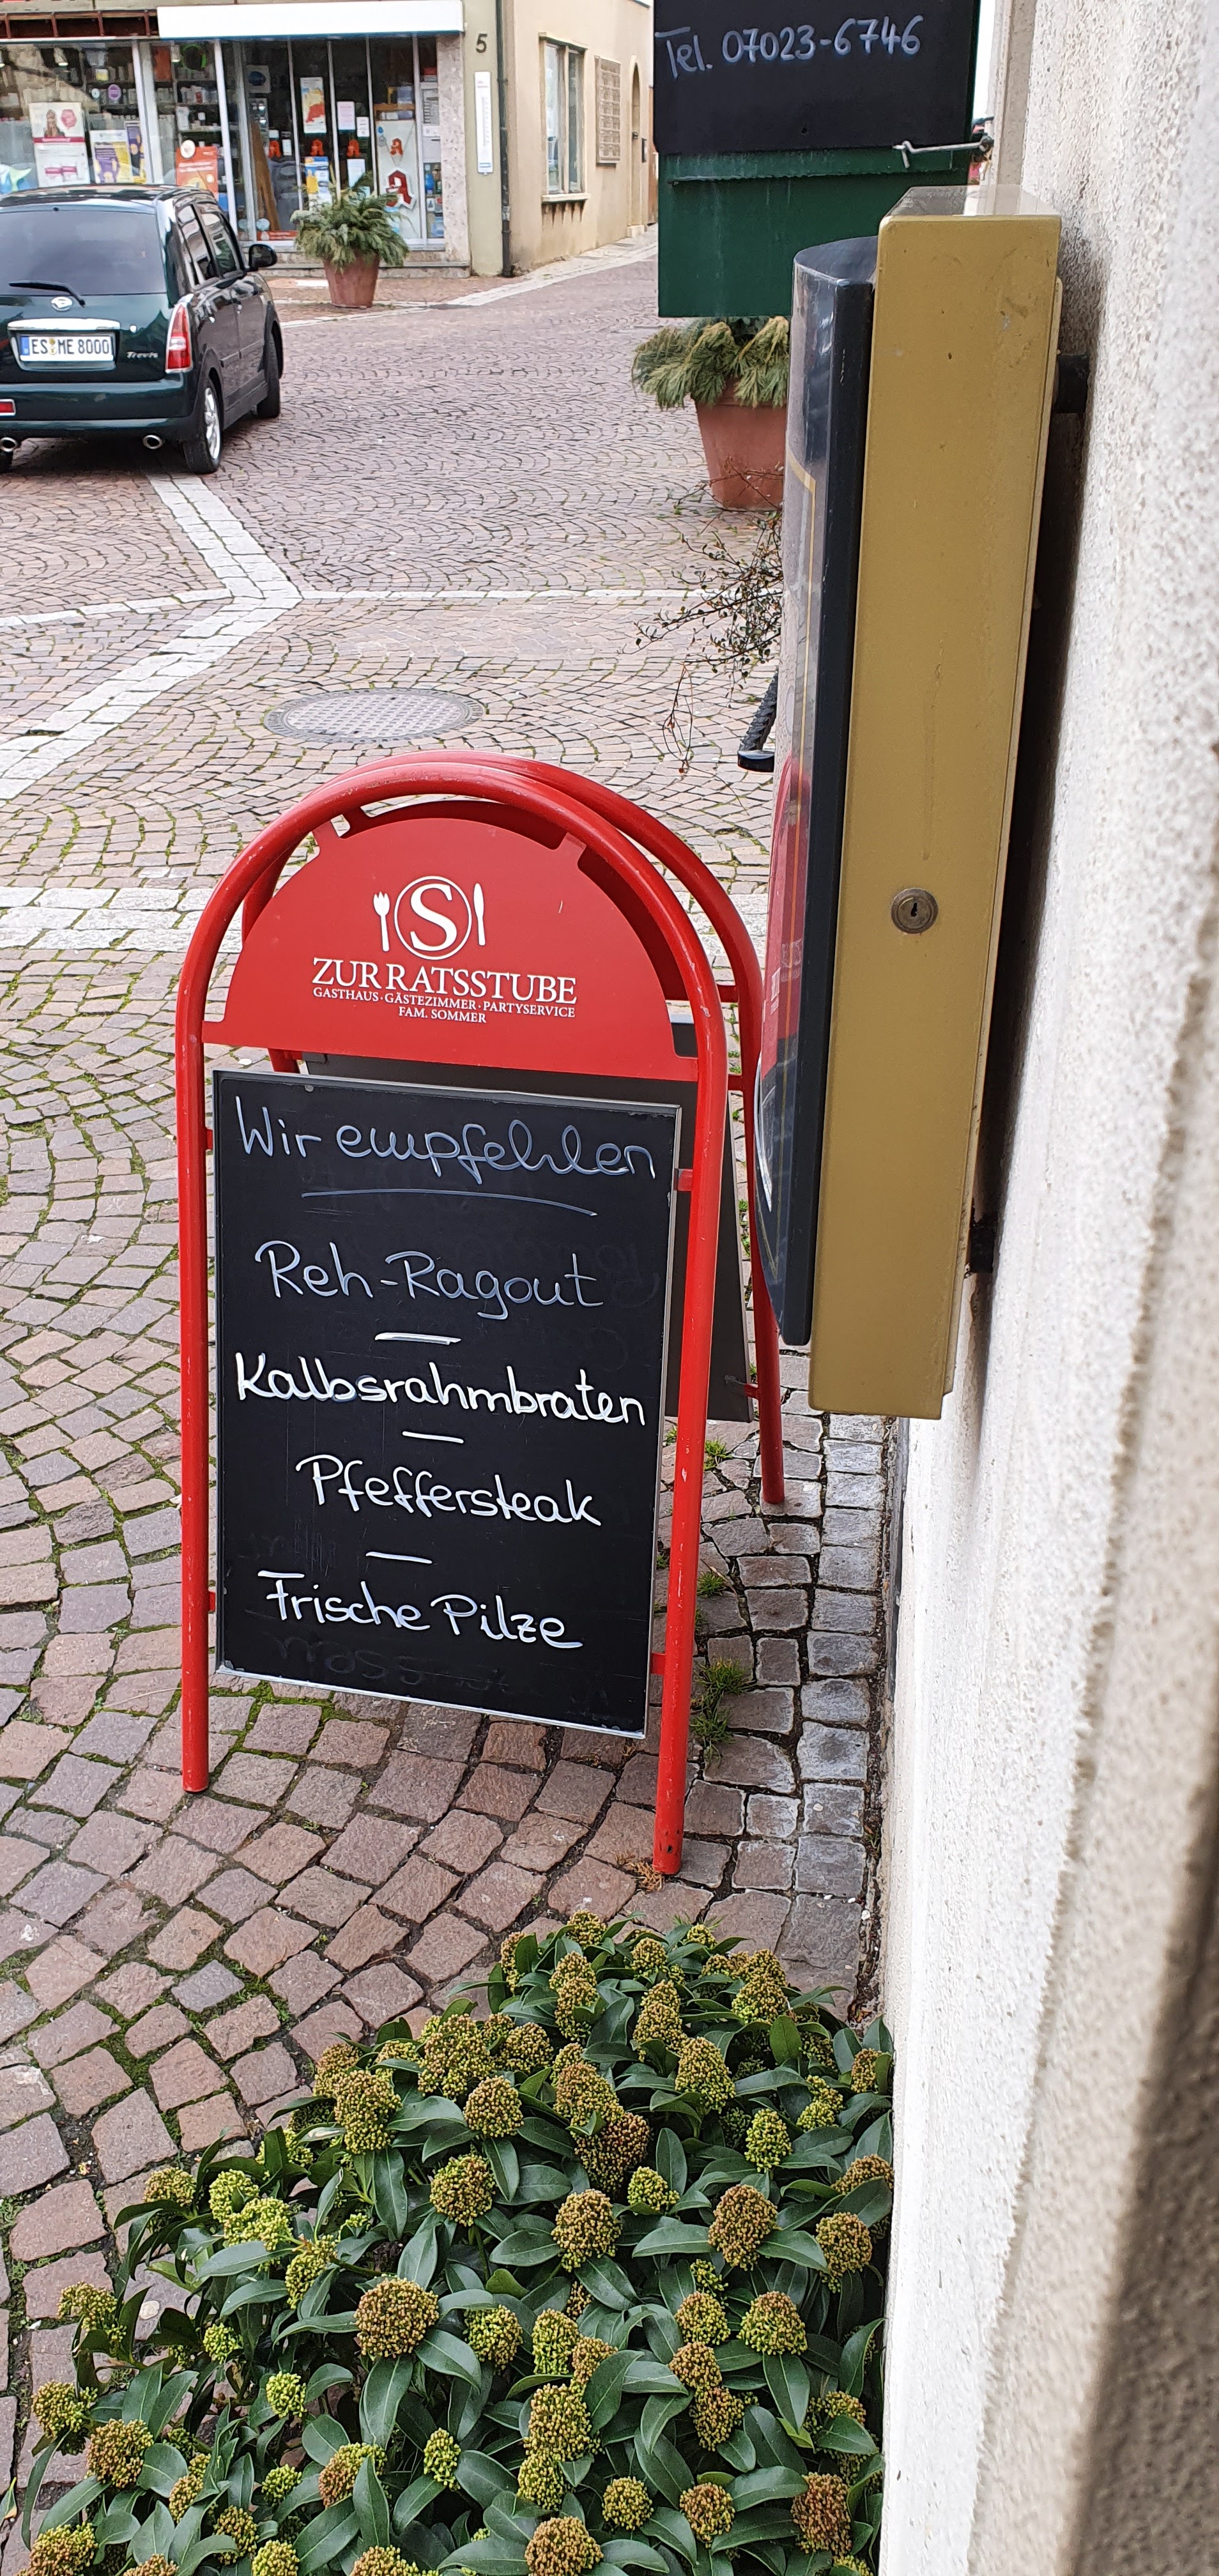 5
Tel. 07023-6746
ES ME 8000
Trevis
S
ZUR RATSSTUBE
GASTHAUS · GÄSTEZIMMER · PARTYSERVICE
FAM. SOMMER
Wir empfehlen
Reh-Ragout
Kalbsrahmbraten
Pfeffersteak
Frische Pilze